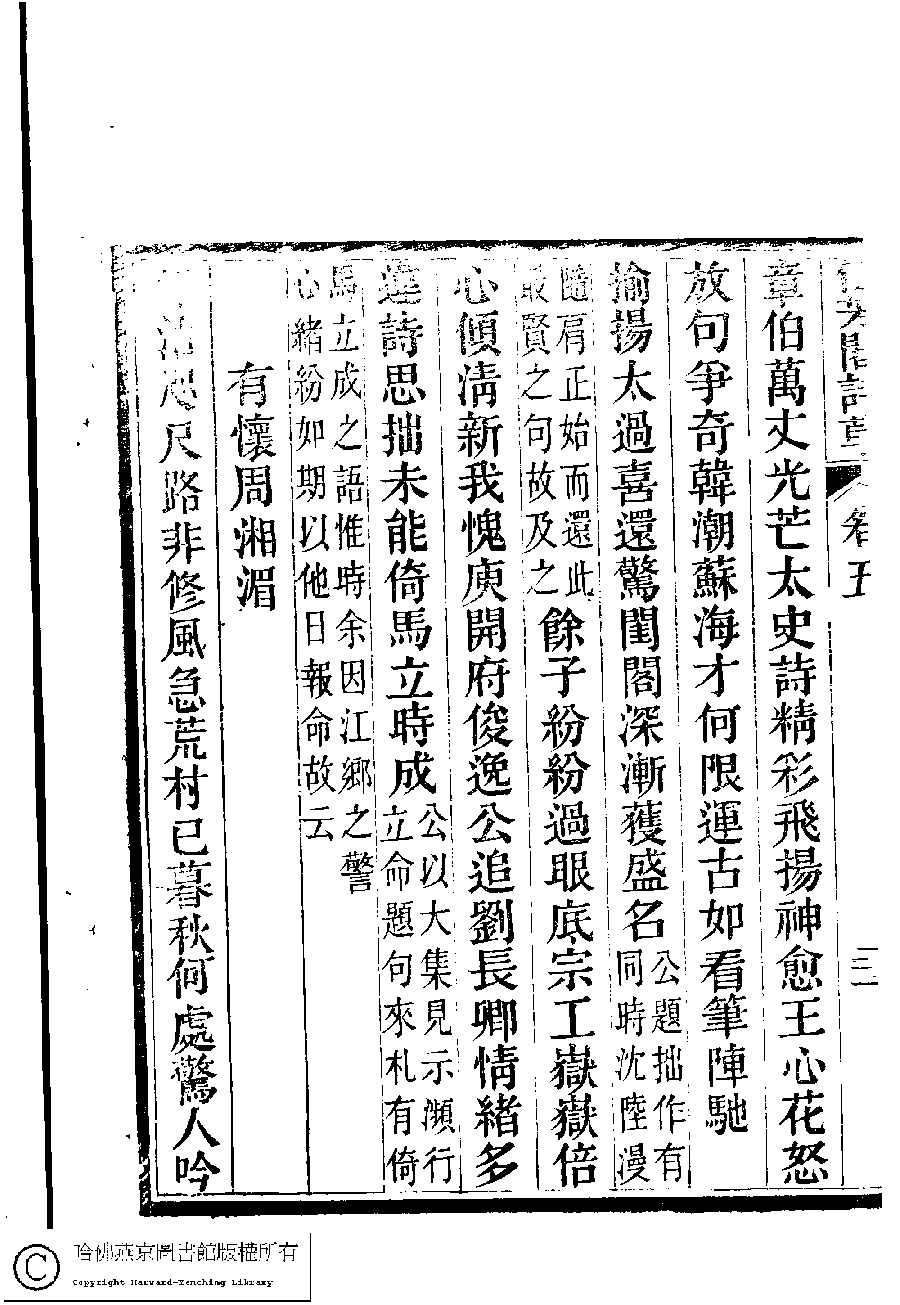 閣詩草 卷五 三
章伯萬丈光芒太史詩精彩飛揚神愈王心花怒
放句爭奇韓潮蘇海才何限運古如看筆陣馳
揄揚太過喜還驚閨閣深漸獲盛名公題拙作有
同時沈陸漫
隨肩正始而還此
最賢之句故及之餘子紛紛過眼底宗工嶽嶽倍
心傾清新我愧庾開府俊逸公追劉長卿情緒多
違詩思拙未能倚馬立時成公以大集見示瀕行
立命題句來札有倚
馬立成之語惟時余因江鄉之警
心緒紛如期以他日報命故云
有懷周湘湄
洄咫尺路非修風急荒村已暮秋何處驚人吟
哈佛燕京圖書館版權所有
Copyright Harvard-Yenching Library